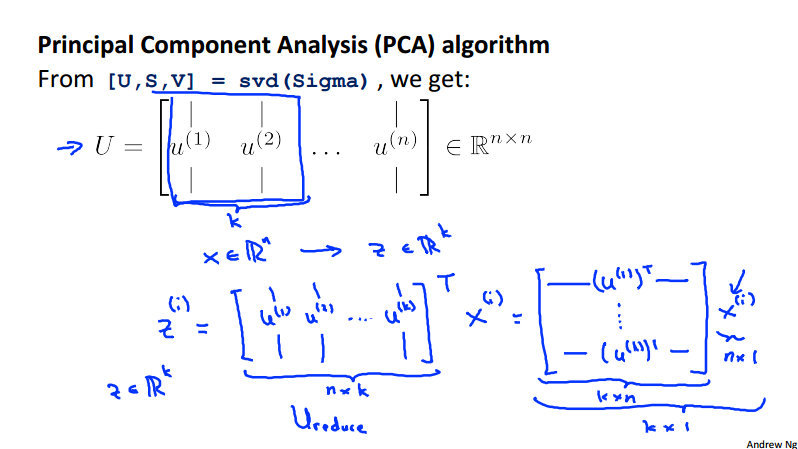 Principal Component Analysis (PCA) algorithm
From [U,S,V] = svd(Sigma) , we get:
→ U = [ u^(1) u^(2) ... u^(n) ] ∈ ℝ^{n×n}
k
x ∈ ℝ^n → z ∈ ℝ^k
z^(i) = [ u^(1) u^(2) ... u^(k) ]^T x^(i) = [ —(u^(1))^T— ⋮ —(u^(k))^T— ] x^(i)
z ∈ ℝ^k
n×k
k×n
n×1
U_reduce
k×1
Andrew Ng